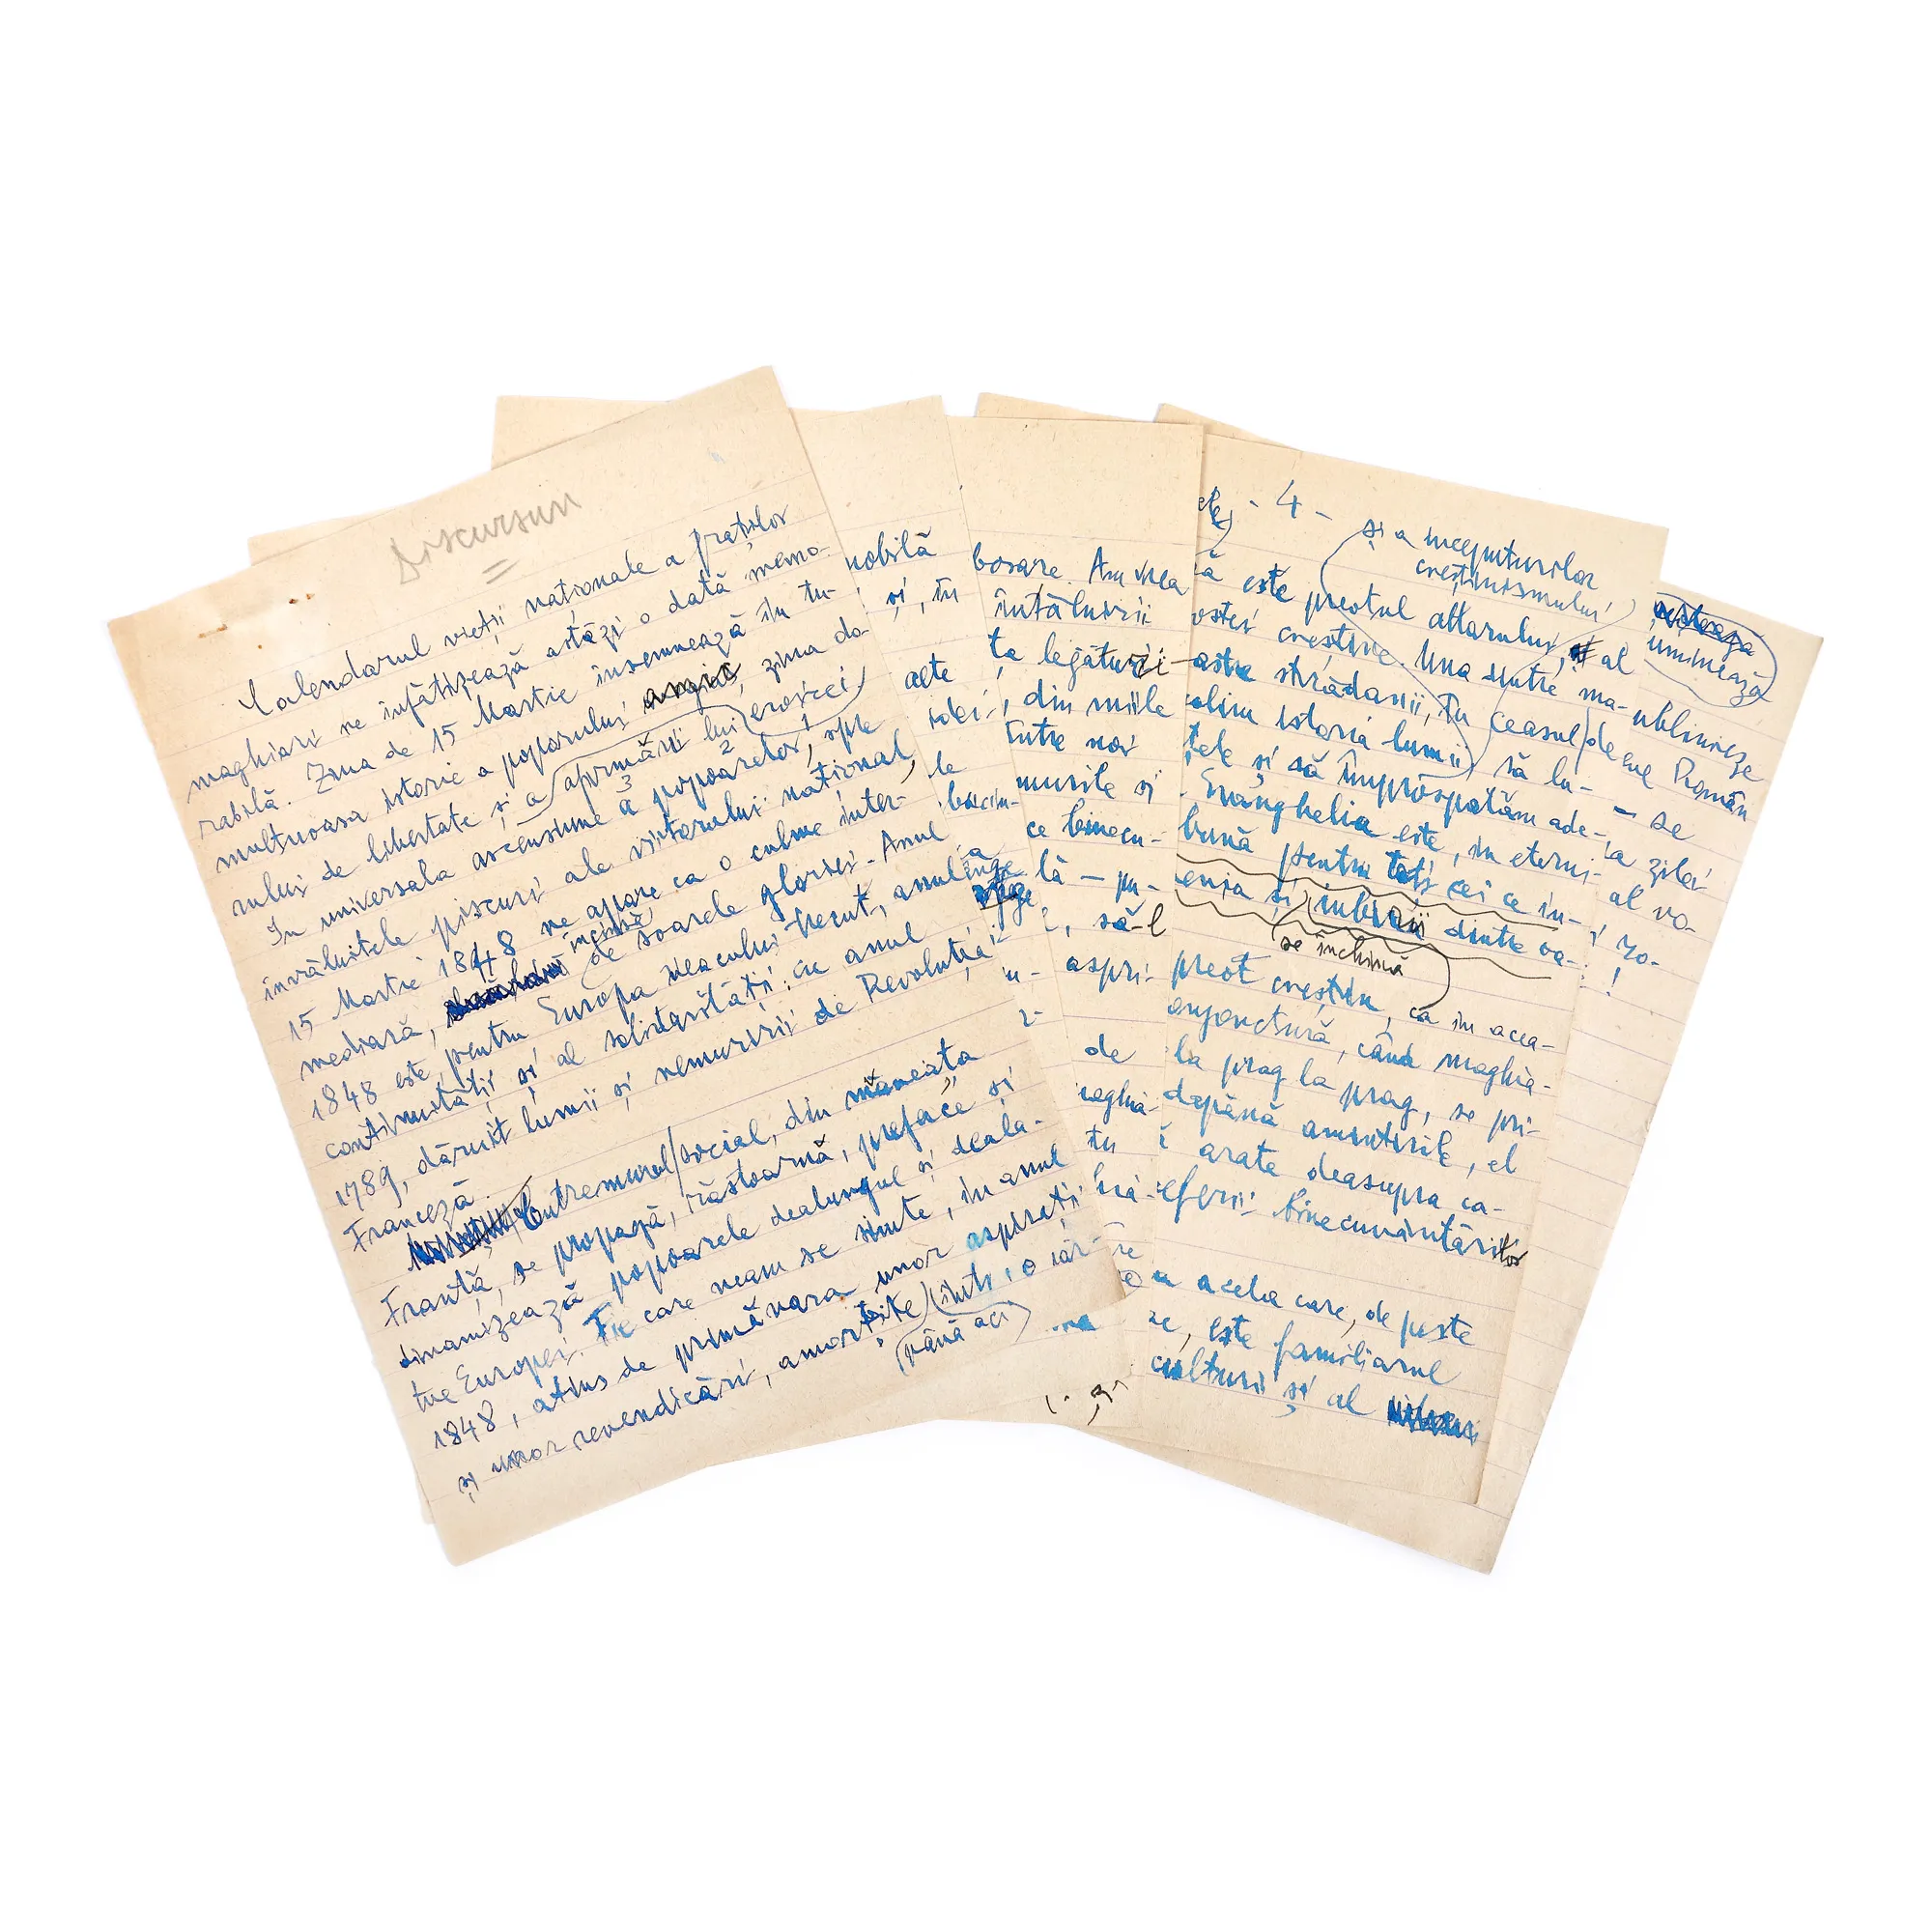 Discursun
Calendarul vieții naționale a fraților
maghiari ne înfățizează astăzi o dată memo-
rabilă. Ziua de 15 Martie însemnează în tu-
multuoasa istorie a poporului, ziua do-
rului de libertate și a afirmării lui eroicei
3 2 1
În universala ascensiune a popoarelor, spre
învăluitele piscuri ale viitorului național,
15 Martie 1848 ne apare ca o culme inter-
mediară, incinsă de soarele gloriei. Anul
1848 este, pentru Europa veacului trecut, anul
continuității și al solidarității; cu anul
1789, dăruit lumii și nemuririi de Revoluția
Franceză.
Cutremurul social, din măreața
Franță, se propagă, răstoarnă, preface și
dinamizează popoarele dealungul și deala-
tul Europei. Fie care neam se simte, în anul
1848, atins de primăvara unor aspirații
și unor revendicări, amorțite până aci într'o iar-
nobilă
și, în
alte
idei
le
bucim-
bosare. Am vrea
întâlnirii
ta legături
, din miile
între noi
murile și
ce binecu-
lă – pu-
, să-l
aspri-
de
maghia-
tu
- 4 -
și a începuturilor
creștinismului
ă este preotul altarului, al
ostei creștine. Una dintre ma-
astre strădanii, în ceasul de
olim istoria lumii, să lu-
tele și să împrospătăm ade-
Evanghelia este, în eterni-
bună pentru toți cei ce în-
enia și iubirii dintre oa-
se închină
preot creștin, ca în acea-
onjonctură, când maghia-
la prag la prag, se pri-
dapănă amintirile, el
arate deasupra ca-
eferii binecuvântărilor
a acela care, de peste
re, este familiarul
culturii și al
uminează
ublinieze
eue Român
– se
a zilei
al vo-
!